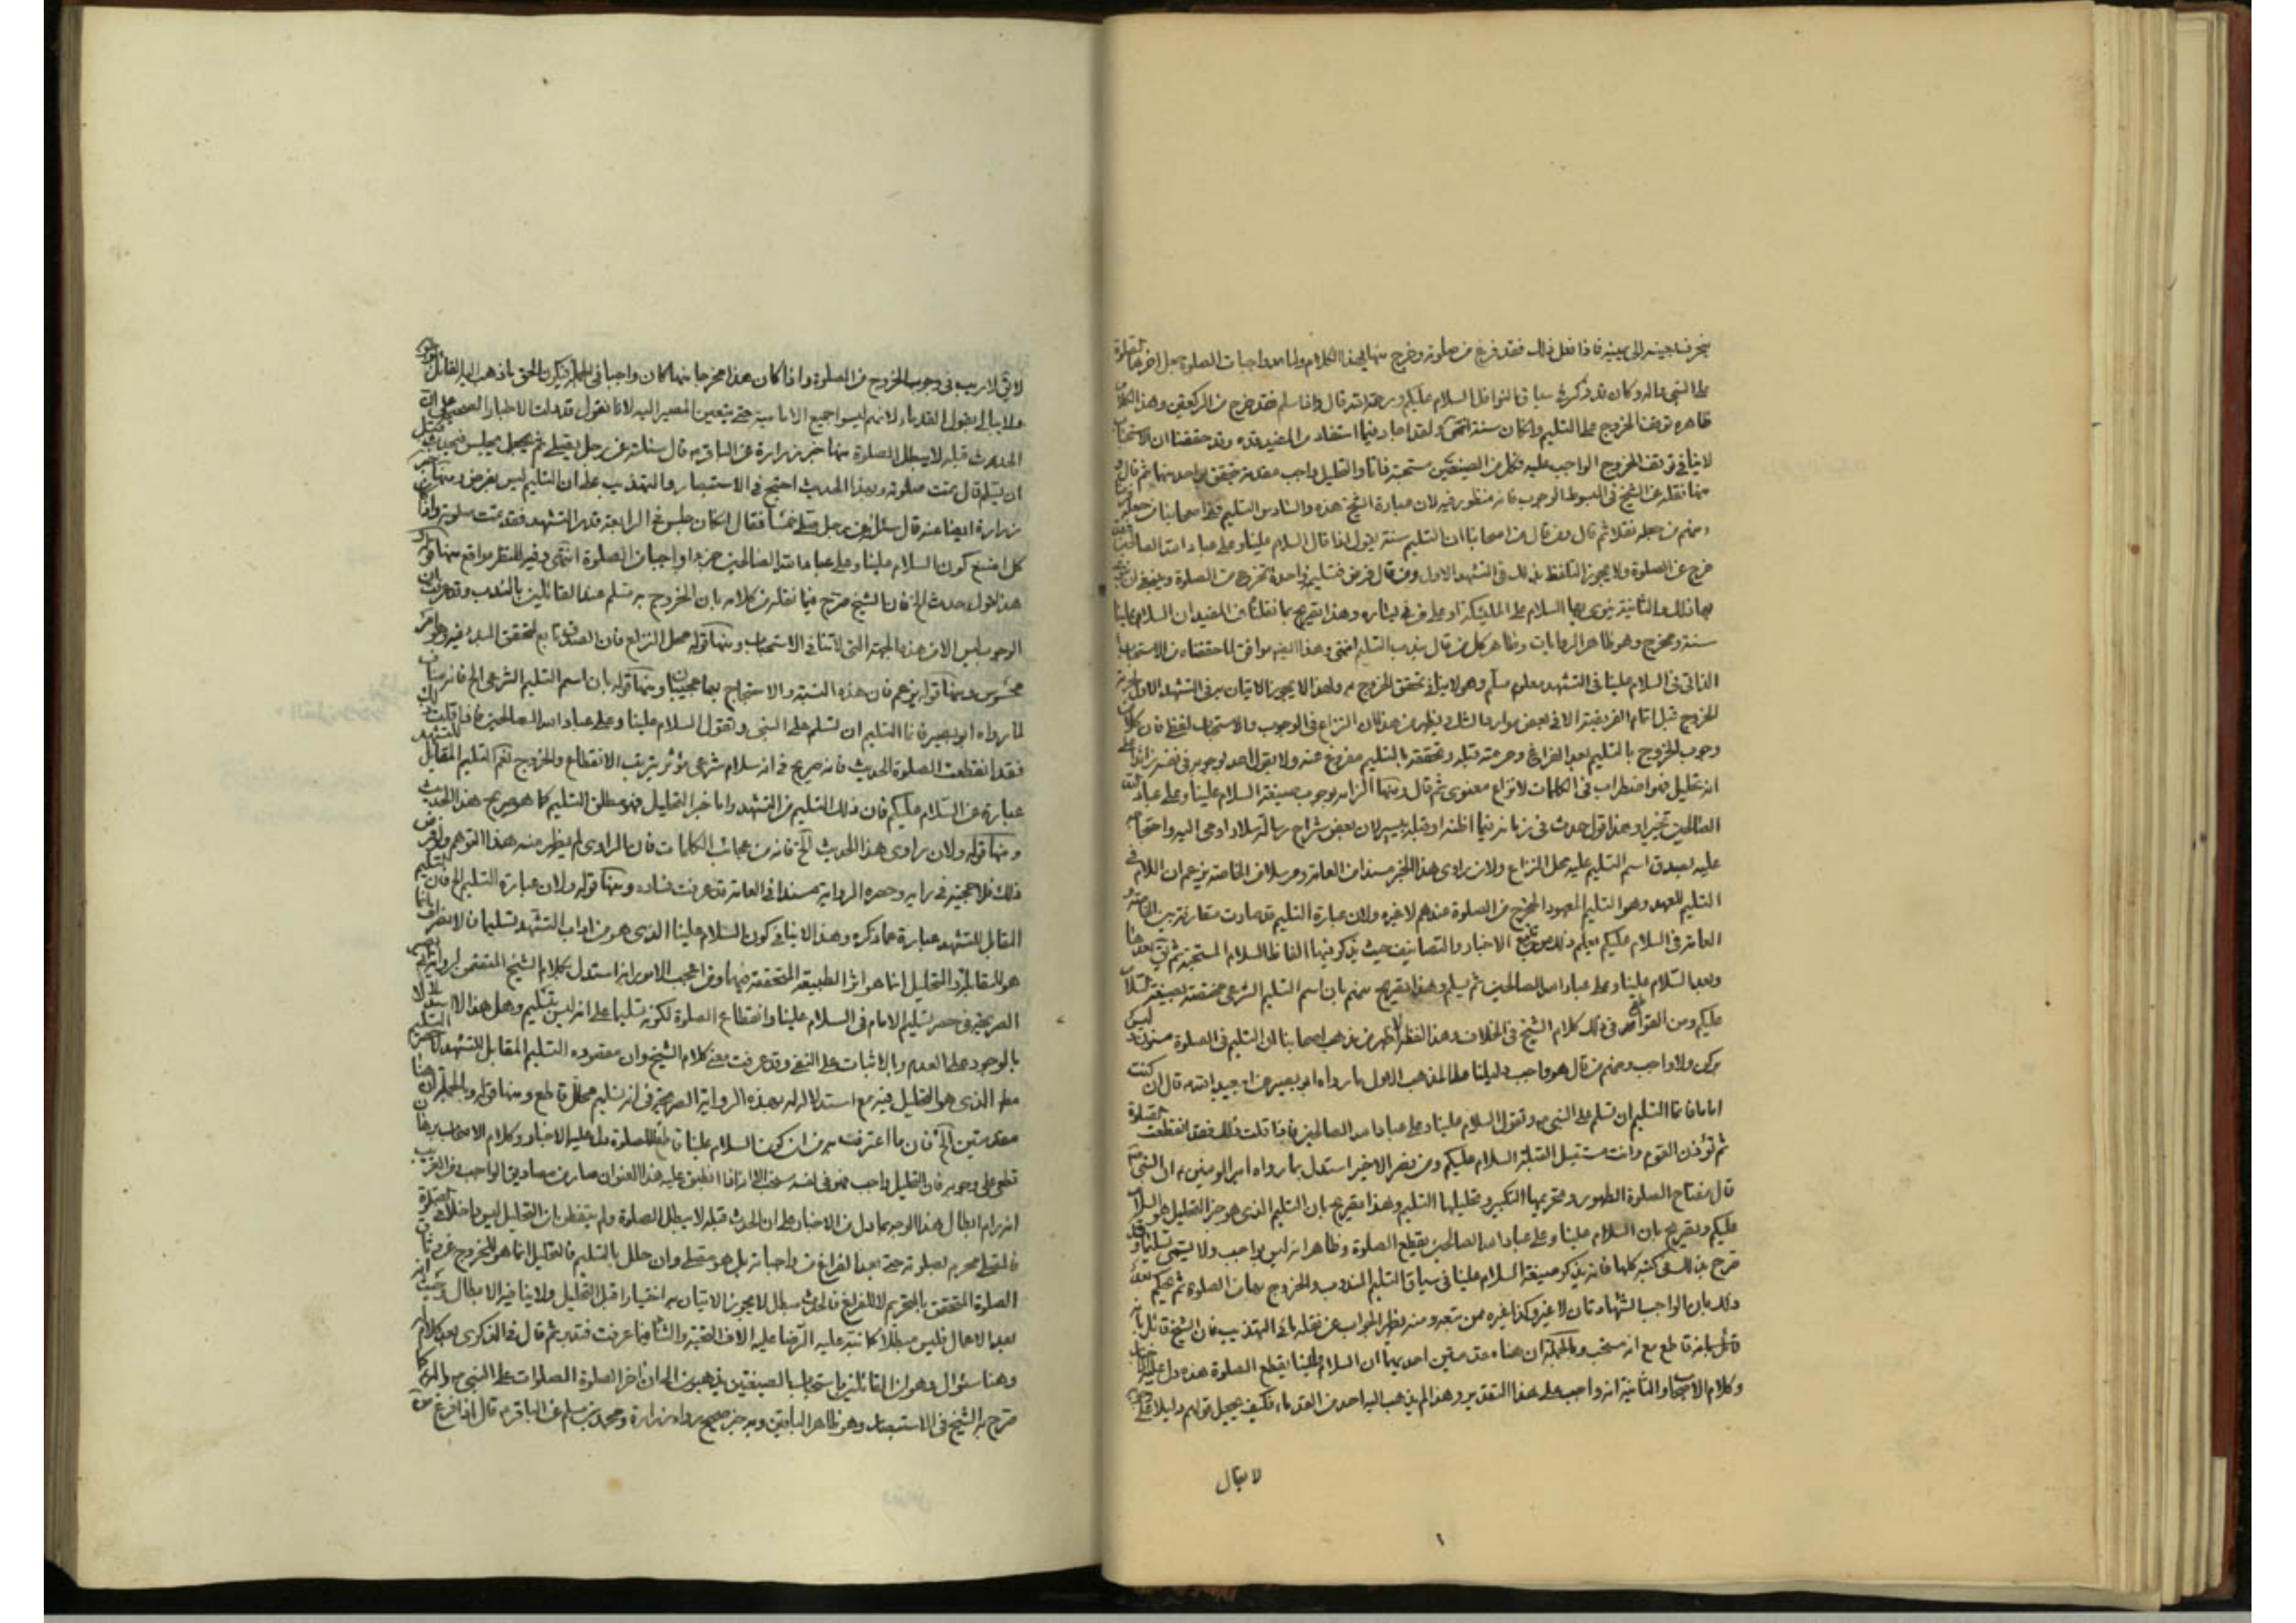 ينحرف بعينه الى يمينه فاذا فعل ذلك فقد فرغ من صلوته وخرج منها بهذا الكلام ولما عد واجبات الصلوة جعل اخرها الصلوة
على النبي واله وكان قد ذكر في سياق النوافل السلام عليكم ورحمة الله قال واذا سلم فقد خرج من الركعتين وهذا الكلام
ظاهره توقف الخروج على التسليم وان كان سنة انتهى ولقد اجاد فيما استفاد من المفيد قده وقد حققنا ان الاستحباب
لا ينافي توقف الخروج الواجب عليه فكل من الصيغتين مستحبة ذاتا والتحليل واجب مقدمة فيتحقق بواحد منهما ثم قال
منها نقله عن الشيخ في المبسوط الوجوب فانه منظور فيه لان عبارة الشيخ هذه والسادس التسليم ففي اصحابنا من جعله
ومنهم من جعله نفلا ثم قال ومن قال من اصحابنا ان التسليم سنة يقول اذا قال السلام علينا وعلى عباد الله الصالحين فقد
خرج عن الصلوة ولا يجوز التلفظ بذلك في التشهد الاول ومن قال فرض فتسليمة واحدة تخرج من الصلوة وينبغي ان ينوي
بها ذلك والثانية ينوي بها السلام على الملئكة او على من في يساره وهذا تصريح بما نقلنا عن المفيد ان السلام علينا
سنة ومخرج وهو ظاهر الروايات وظاهر كل من قال بندب التسليم انتهى وهذا ايضا موافق لما حققناه من الاستحباب
الذاتي في السلام علينا في التشهد معلوم مسلم وهو لا ينافي تحقق الخروج به ولهذا لا يجوز الاتيان به في التشهد الاول لحرمة
الخروج قبل اتمام الفريضة الا في بعض موارد الشك فيظهر من هذا ان النزاع في الوجوب والاستحباب لفظي فان كلا من
وجوب الخروج بالتسليم بعد الفراغ وحرمته قبله وتحققه بالتسليم مفروغ عنه ولا يقول احد بوجوبه في نفسه زائدا على
انه تحليل فهو اضطراب في الكلمات لا نزاع معنوي ثم قال ومنها الزامه بوجوب صيغة السلام علينا وعلى عباد الله
الصالحين تخييرا وهذا قول حدث في زمانه فيما اظنه او قبله بيسير لان بعض شراح رسالة سلار اومى اليه واحتجاجه
عليه بصدق اسم التسليم عليه محل النزاع ولان راوي هذا الخبر مسندا من العامة ومرسلا من الخاصة يزعم ان اللام في
التسليم للعهد وهو التسليم المعهود المخرج من الصلوة عندهم لا غيره ولان عبارة التسليم قد صارت متعارفة بين الخاصة و
العامة في السلام عليكم يعلم ذلك من تتبع الاخبار والتصانيف حيث يذكر فيها الفاظ السلام المستحبة ثم يقال بعد هذا
وبعد السلام علينا وعلى عباد الله الصالحين ثم يسلم وهذا تصريح منهم بان اسم التسليم الشرعي مختص بصيغة السلام
عليكم ومن القواطع في ذلك كلام الشيخ في الخلاف وهذا لفظه الاظهر من مذهب اصحابنا ان التسليم في الصلوة مسنون ليس
بركن ولا واجب ومنهم من قال هو واجب دليلنا على المذهب الاول ما رواه ابو بصير عن ابي عبد الله ع قال ان كنت
اماما فانما التسليم ان تسلم على النبي ص وتقول السلام علينا وعلى عباد الله الصالحين فاذا قلت ذلك فقد انقطعت الصلوة
ثم تؤذن القوم وانت مستقبل القبلة السلام عليكم ومن نصر الاخير استدل بما رواه امير المؤمنين ع ان النبي ص
قال مفتاح الصلوة الطهور وتحريمها التكبير وتحليلها التسليم وهذا تصريح بان التسليم الذي هو خبر التحليل هو السلام
عليكم وتصريح بان السلام علينا وعلى عباد الله الصالحين يقطع الصلوة وظاهره انه ليس بواجب ولا يسمى تسليما وقد
صرح بذلك في كتبه كلها فانه يذكر صيغة السلام علينا في سياق التسليم المندوب والخروج بها من الصلوة ثم يحكم بعد
ذلك بان الواجب الشهادتان لا غير وكذا غيره ممن تبعه ومنه يظهر الجواب عن نقله ما في التهذيب فان الشيخ قائل بانه
قائل بانه قاطع مع انه مستحب وبالجملة ان هنا مقدمتين احديهما ان السلام علينا يقطع الصلوة هذه دل عليها الاخبار
وكلام الاصحاب والثانية انه واجب على هذا التقدير وهذا لم يذهب اليه احد من القدماء فكيف يجعل قولهم دليلا على
لا يقال
لا يق لا ريب في وجوب الخروج من الصلوة واذا كان هذا مخرجا منها كان واجبا في الجملة فيكون الحق ما ذهب اليه القائل
ولا يبالي بقول القدماء لانهم ليسوا جميع الامامية حتى يتعين المصير اليه لانا نقول قد دلت الاخبار الصحيحة على ان
الحدث قبله لا يبطل الصلوة منها خبر زرارة عن الباقر ع قال سئلته عن رجل يصلي ثم يجلس فيحدث قبل
ان يسلم قال تمت صلوته وبهذا الحديث احتج في الاستبصار والتهذيب على ان التسليم ليس بفرض ومنها خبر
زرارة ايضا عنه قال سئل عن رجل صلى خمسا فقال ان كان جلس في الرابعة قدر التشهد فقد تمت صلوته
كل امنع كون السلام علينا وعلى عباد الله الصالحين جزءا وواجبا من الصلوة انتهى وفيه للنظر مواقع منها قوله
هذا القول حدث الخ فان الشيخ صرح فيما نقله من كلامه بان الخروج به مسلم عند القائلين بالندب وقد عرفت ان
الوجوب ليس الا من هذه الجهة التي لا تنافي الاستحباب ومنها قوله محل النزاع فان الصدق تابع لتحقق المبدء فيه وهو امر
محسوس ومنها قوله يزعم فان هذه النسبة والاستحجاج بها عجيبان ومنها قوله بان اسم التسليم الشرعي الخ فانه مناف
لما رواه ابو بصير فانما التسليم ان تسلم على النبي وتقول السلام علينا وعلى عباد الله الصالحين فاذا قلت ذلك
فقد انقطعت الصلوة الحديث فانه صريح في انه سلام شرعي مؤثر يترتب الانقطاع والخروج نعم التسليم المقابل للتشهد
عبارة عن السلام عليكم فان ذلك التسليم من التشهد واما خبر التحليل فهو مطلق التسليم كما هو صريح هذا الحديث
ومنها قوله ولان راوي هذا الحديث الخ فانه من عجائب الكلمات فان الراوي لم يظهر منه هذا التوهم ولو فرض
ذلك فلا حجية في رايه وحصره الرواية مسندا في العامة قد عرفت فساده ومنها قوله ولان عبارة التسليم الخ فان التسليم
المقابل للتشهد عبارة عما ذكره وهذا لا ينافي كون السلام علينا الذي هو من اداب التشهد تسليما
هو للمقابلة والتحليل انما هو اثر الطبيعة المتحققة فيهما ومن اعجب الامور انه استدل بكلام الشيخ المتضمن لرواية ابي بصير
الصريحة في حصر تسليم الامام في السلام علينا وانقطاع الصلوة لكونه تسليما على انه ليس بتسليم وهل هذا الا استدلالا
بالوجود على العدم وبالاثبات على النفي وقد عرفت معنى كلام الشيخ وان مقصوده التسليم المقابل للتشهد
التسليم الذي هو التحليل فيه مع استدلاله بهذه الرواية الصريحة في انه تسليم محلل قاطع ومنها قوله وبالجملة ان هنا
مقدمتين الخ فان ما اعترف به من ان كون السلام علينا قاطعا للصلوة دل عليه الاخبار وكلام الاصحاب برهان
قطعي على وجوبه فان التحليل واجب فهو في نفسه مستحب الا انه اذا انطبق عليه هذا العنوان صار من مصاديق الواجب
انه رام ابطال هذا الوجه بما دل من الاخبار على ان الحدث قبله لا يبطل الصلوة ولم يتفطن بان التحليل ليس داخلا في الصلوة
فالمصلي محرم بصلوته حتى بعد الفراغ من واجباته بل هو مصلي وان حلل بالتسليم فالتحليل انما هو للخروج عن
الصلوة المتحقق بالتحريم لا للفراغ فالحدث مبطل لا يجوز الاتيان به اختيارا قبل التحليل ولا ينافيه الابطال
بعد الاكمال فليس مبطلا كما نبه عليه الرضا عليه الاف التحية والثناء فيما عرفت فتدبر ثم قال في الذكرى بعد كلام
وهنا سئوال وهو ان القائلين باستحباب الصيغتين يذهبون الى ان اخر الصلوة الصلوات على النبي ص واله كما
صرح به الشيخ في الاستبصار وهو ظاهر الباقين وبه خبر صحيح رواه زرارة ومحمد بن مسلم عن الباقر ع قال اذا فرغ من